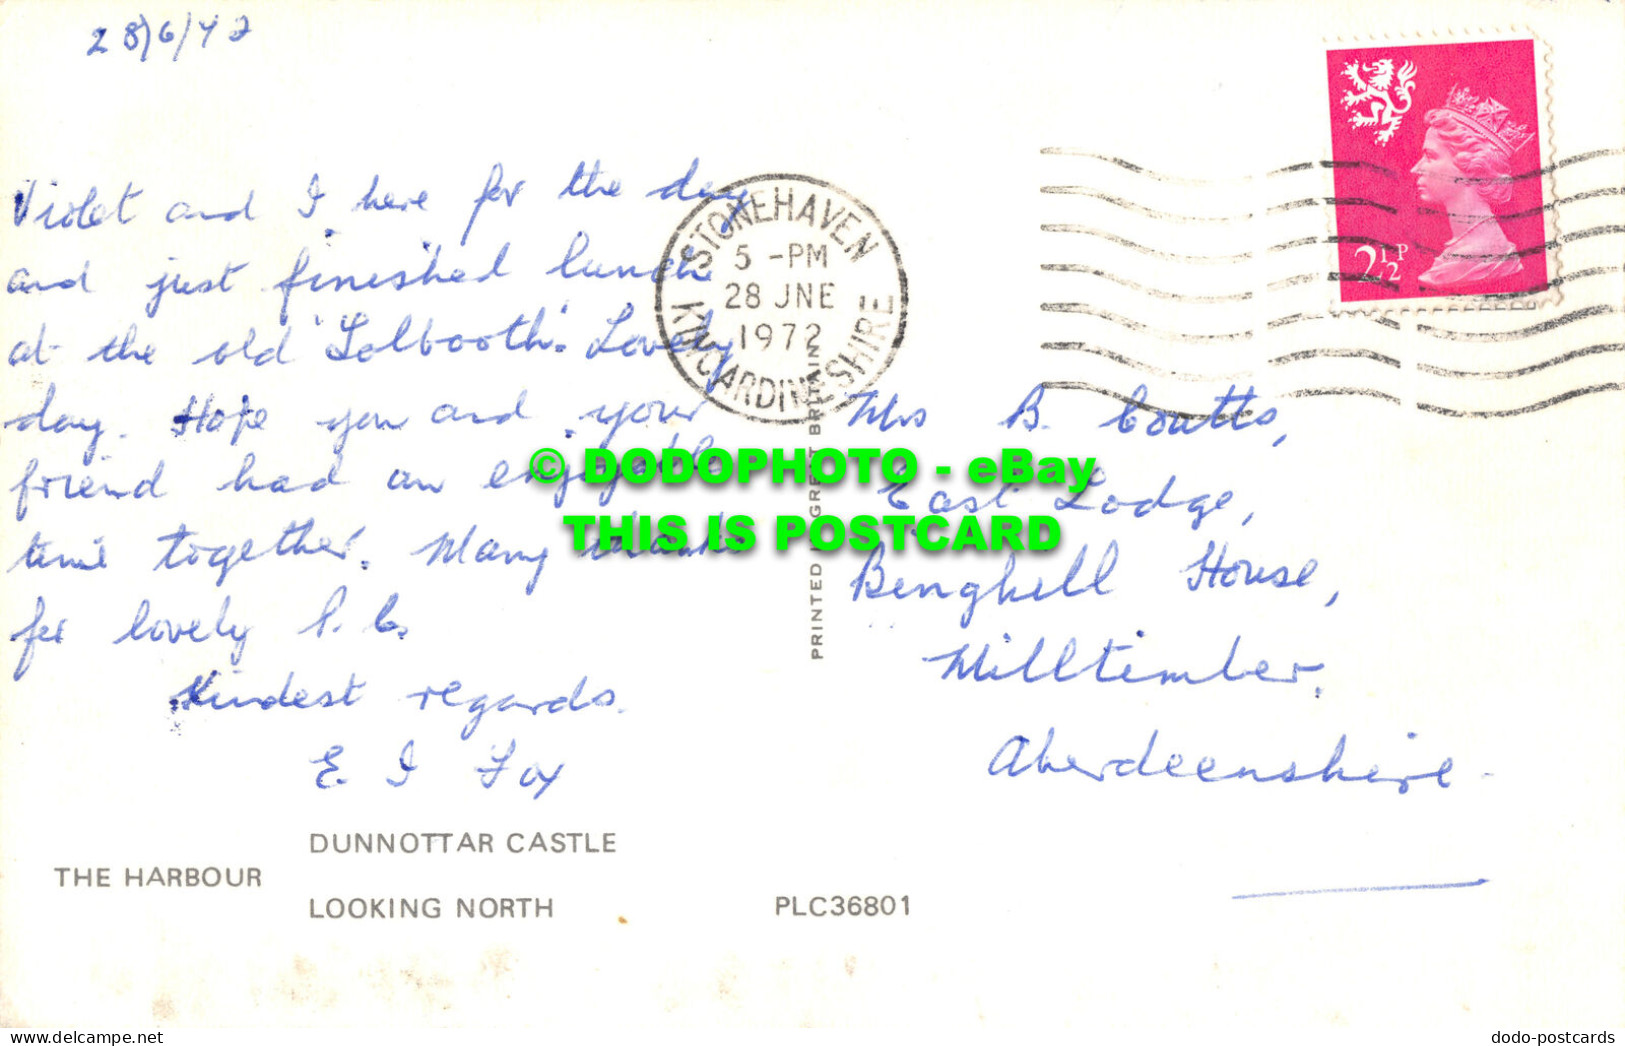 28/6/72
Violet and I here for the day
and just finished lunch
at the old 'Tolbooth'. Lovely
day. Hope you and your
friend had an enjoyable
time together. Many thanks
for lovely P.C.
Kindest regards.
E I Foy
STONEHAVEN
5 -PM
28 JNE
1972
KINCARDINESHIRE
2½P
Mrs B. Coutts,
East Lodge,
Beinghill House,
Milltimber,
Aberdeenshire.
PRINTED IN GREAT BRITAIN
© DODOPHOTO - eBay
THIS IS POSTCARD
DUNNOTTAR CASTLE
THE HARBOUR
LOOKING NORTH
PLC36801
delcampe.net
dodo-postcards